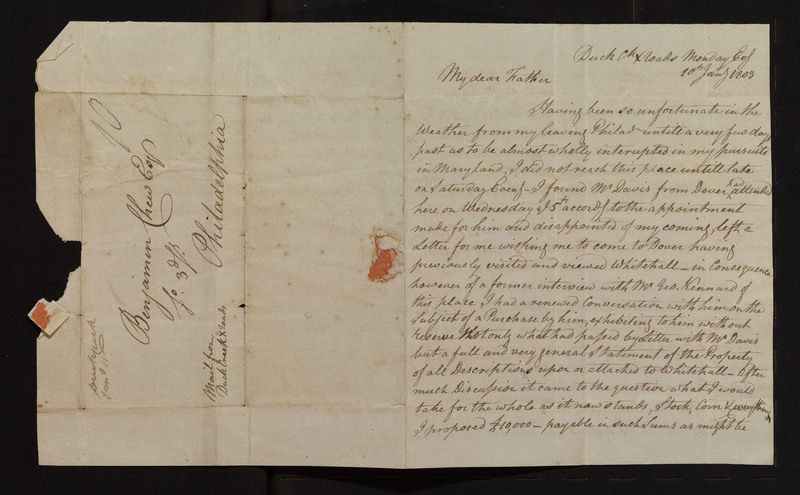 Duck Ck X roads Monday Evg
10th Jany 1803
My dear Father
Having been so unfortunate in the
Weather from my leaving Philada untill a very few days
past as to be almost wholly interupted in my pursuits
in Maryland, I did not reach this place untill late
on Saturday Eveng - I found Mr Davis from Dover had attended
here on Wednesday ye 5th accordg to the appointment
made for him and disappointed of my coming, left a
Letter for me wishing me to come to Dover having
previously visited and viewed Whitehall - in Consequence
however of a former interview with Mr Geo. Kennard of
this place I had a renewed Conversation with him on the
Subject of a Purchase by him, exhibiting to him without
reserve not only what had passed by Letter with Mr Davis
but a full and very general Statement of the Property
of all Descriptions upon or attached to Whitehall - After
much Discussion it came to the question what I would
take for the whole as it now stands, Stock, Corn & everything
I proposed £10,000 - payable in such Sums as might be
10
Benjamin Chew Esqr
So. 3d St.
Philadelphia
Mail from
Duck Creek X roads
Duck Creek